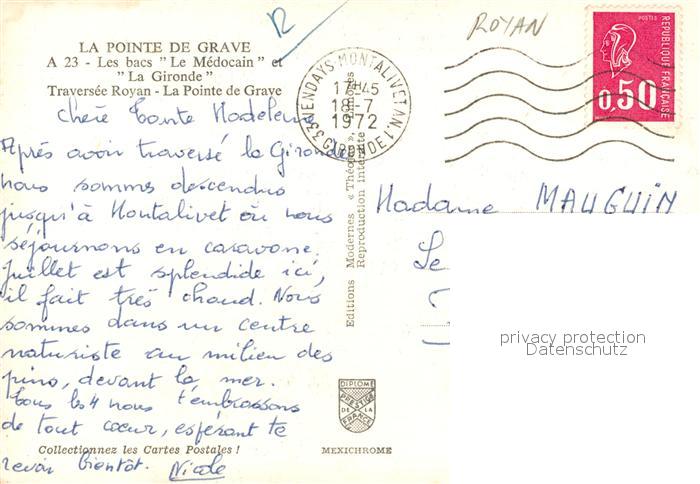 R
ROYAN
LA POINTE DE GRAVE
A 23 - Les bacs "Le Médocain" et
"La Gironde"
Traversée Royan - La Pointe de Grave
33 VENDAYS-MONTALIVET AN. 1
GIRONDE
17H45
18-7
1972
POSTES
REPUBLIQUE FRANÇAISE
0,50
Chère Tante Madeleine
Après avoir traversé la Gironde
nous sommes descendus
jusqu'à Montalivet où nous
séjournons en caravane.
Juillet est splendide ici,
il fait très chaud. Nous
sommes dans un centre
naturiste au milieu des
pins, devant la mer.
Tous les 4 nous t'embrassons
de tout cœur, espérant te
revoir bientôt. Nicole
Editions Modernes « Théojac », Limoges
Reproduction interdite
Madame MAUGUIN
Le
privacy protection
Datenschutz
DIPLOME
PRESTIGE
DE LA
FRANCE
Collectionnez les Cartes Postales !
MEXICHROME